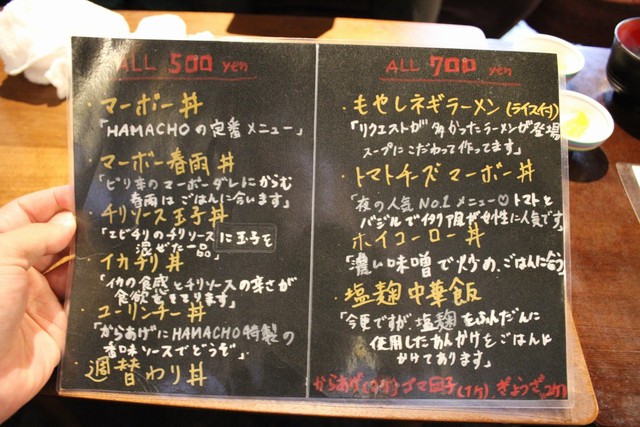 ALL 500 yen
・マーボー丼
「HAMACHOの定番メニュー」
・マーボー春雨丼
「ピリ辛のマーボーダレにからむ
春雨はごはんに合います」
・チリソース玉子丼
「エビチリのチリソースに玉子を
混ぜた一品」
・イカチリ丼
「イカの食感とチリソースの辛さが
食欲をそそります」
・ユーリンチー丼
「からあげにHAMACHO特製の
香味ソースでどうぞ」
週替わり丼
ALL 700 yen
・もやしネギラーメン(ライス付)
「リクエストが多かったラーメンが登場
スープにこだわって作ってます」
・トマトチーズマーボー丼
「夜の人気No.1メニュー♡トマトと
バジルでイタリア風が女性に人気です」
・ホイコーロー丼
「濃い味噌で炒め、ごはんに合う
・塩麹中華飯
「今更ですが塩麹をふんだんに
使用したあんかけをごはんに
かけてあります」
からあげ(1ケ)ゴマ団子(1ケ)ぎょうざ(2ケ)